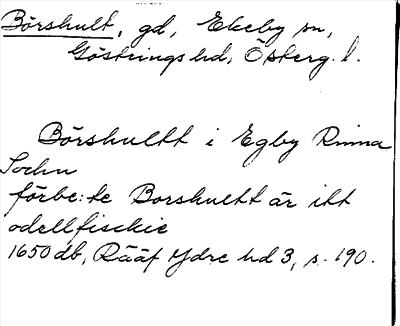 Börshult, gd, Ekeby sn,
Göstrings hd, Österg. l.
Börshultt i Egby Rinna
Sochn
förbe:te Borshultt är itt
odellfischie
1650 db, Rääf Ydre hd 3, s. 190.